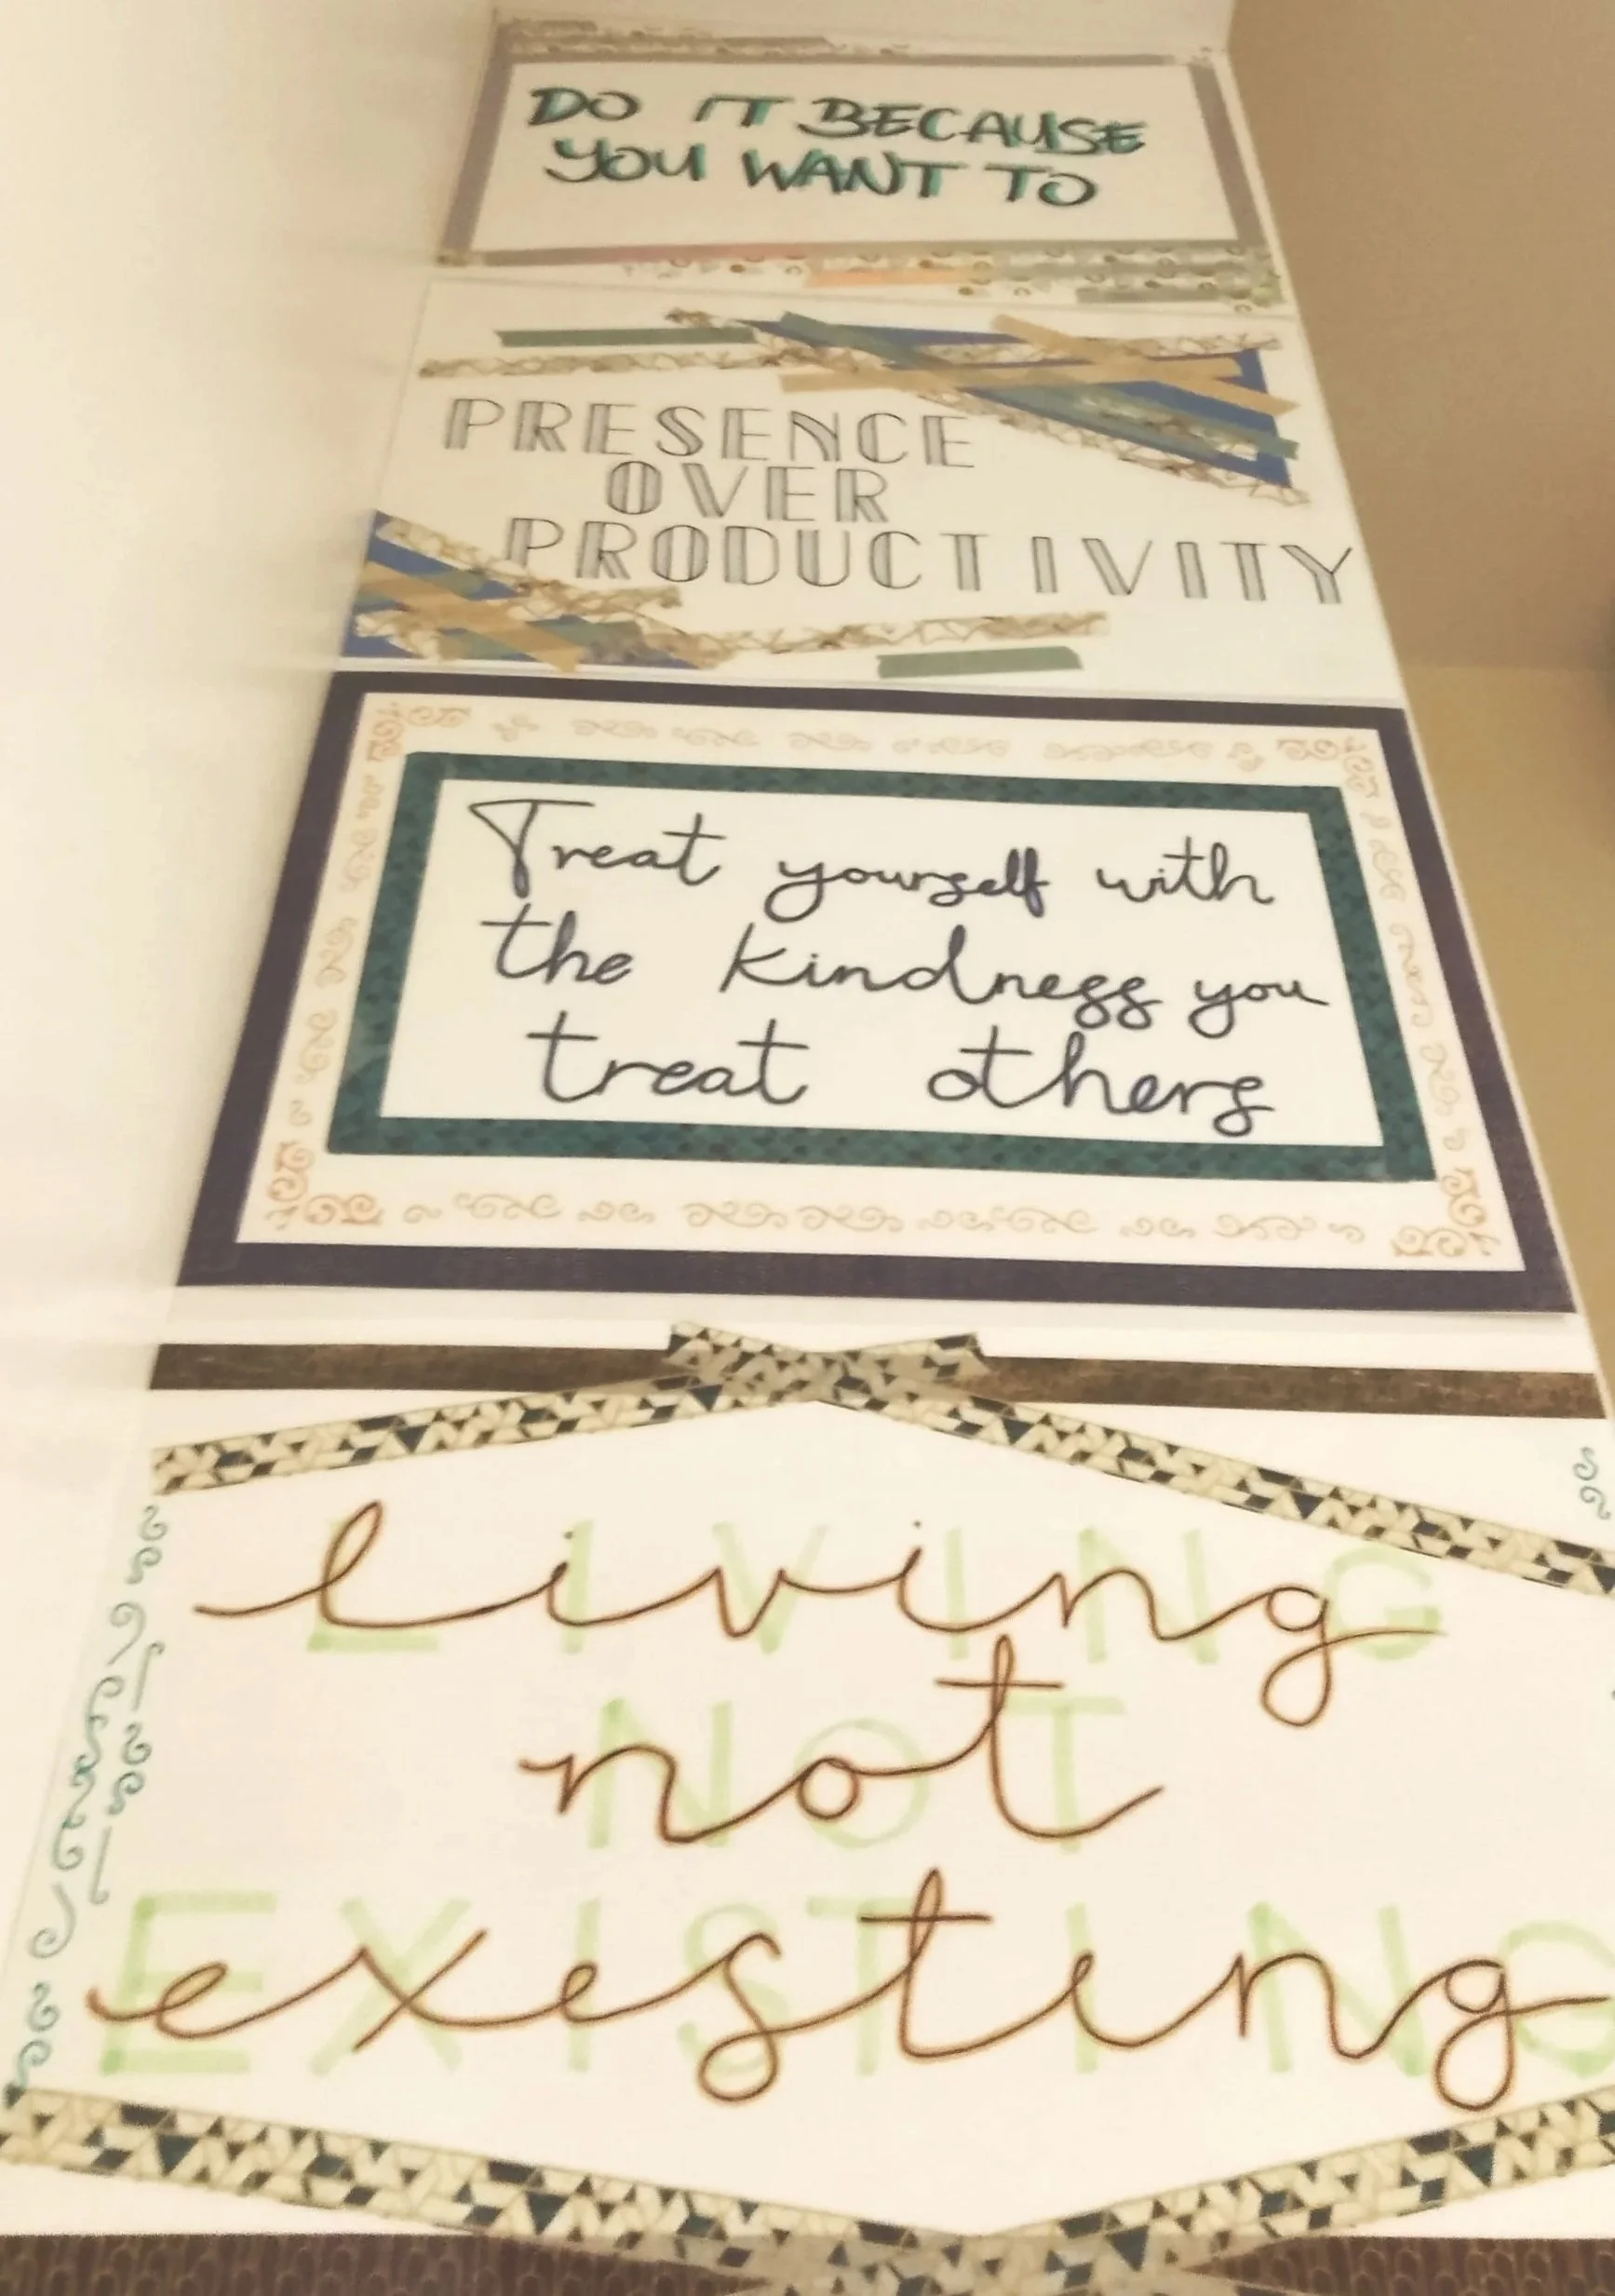 DO IT BECAUSE
YOU WANT TO
PRESENCE
OVER
PRODUCTIVITY
Treat yourself with
the kindness you
treat others
living
LIVING
not
NOT
existing
EXISTING